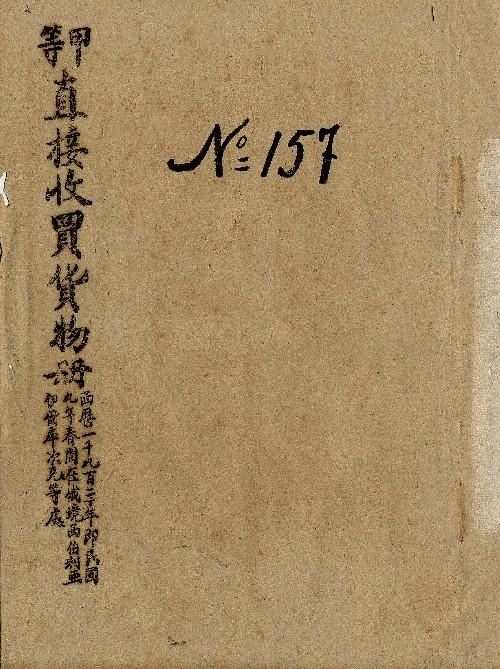 甲等直接收買貨物册
西歷一千九百二十年即民國
九年春間在俄境西伯利亞
伊爾庫次克等處
No. 157